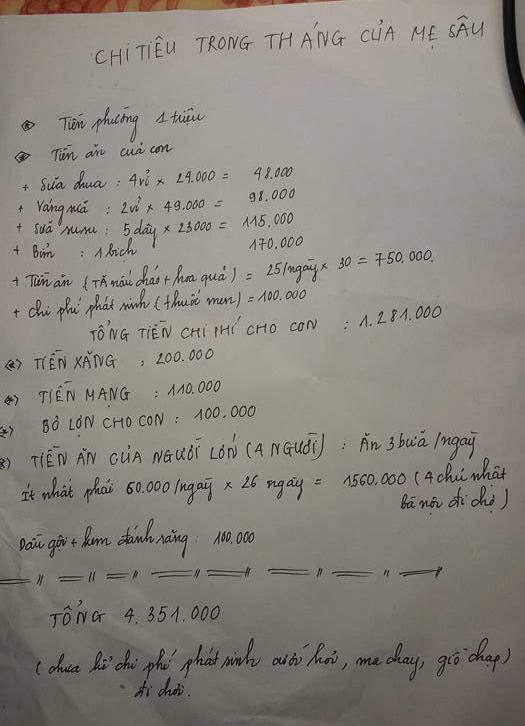 CHI TIÊU TRONG THÁNG CỦA MẸ SÂU
* Tiền phường 1 triệu
* Tiền ăn cuả con
+ Sữa chua : 4vỉ x 24.000 = 48.000
+ Váng sữa : 2vỉ x 49.000 = 98.000
+ Sữa susu : 5 dây x 23000 = 115.000
+ Bỉm : 1 bịch 170.000
+ Tiền ăn (TĂ nấu cháo + hoa quả) = 25/ngày x 30 = 750.000.
+ chi phí phát sinh (thuốc men) = 100.000
TỔNG TIỀN CHI PHÍ CHO CON : 1.281.000
(*) TIỀN XĂNG : 200.000
(*) TIỀN MẠNG : 110.000
(*) BỎ LỢN CHO CON : 100.000
(*) TIỀN ĂN CỦA NGƯỜI LỚN (4 NGƯỜI) : Ăn 3 bưã /ngaỳ
Ít nhất phải 60.000/ngaỳ x 26 ngaỳ = 1560.000 (4 chủ nhật
bà nội đi chợ)
Dầu gội + kem đánh răng : 100.000
TỔNG 4.351.000
(chưa kể chi phí phát sinh cưới hỏi, ma chay, giỗ chạp)
đi chơi.